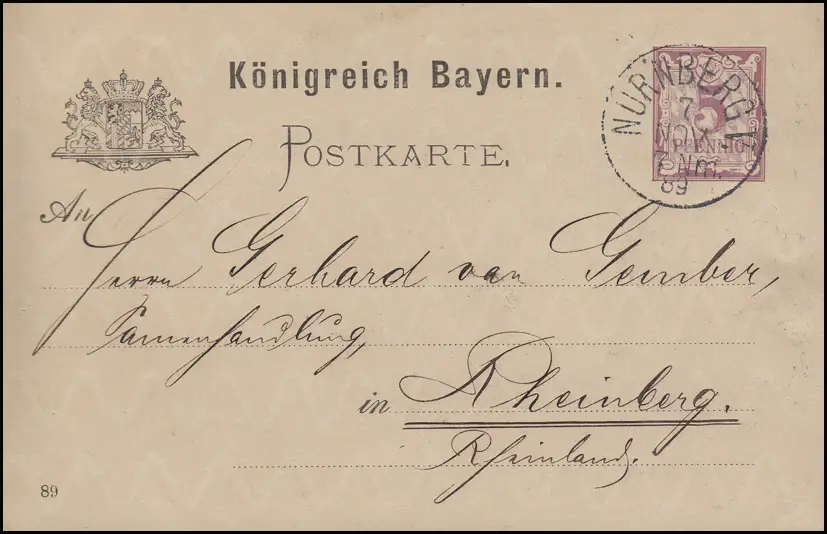 Königreich Bayern.
POSTKARTE.
NÜRNBERG I
7
NOV.
Nm.
89
5
PFENNIG
An
Herrn Gerhard van Gember,
Samenhandlung,
in Rheinberg.
Rheinland.
89